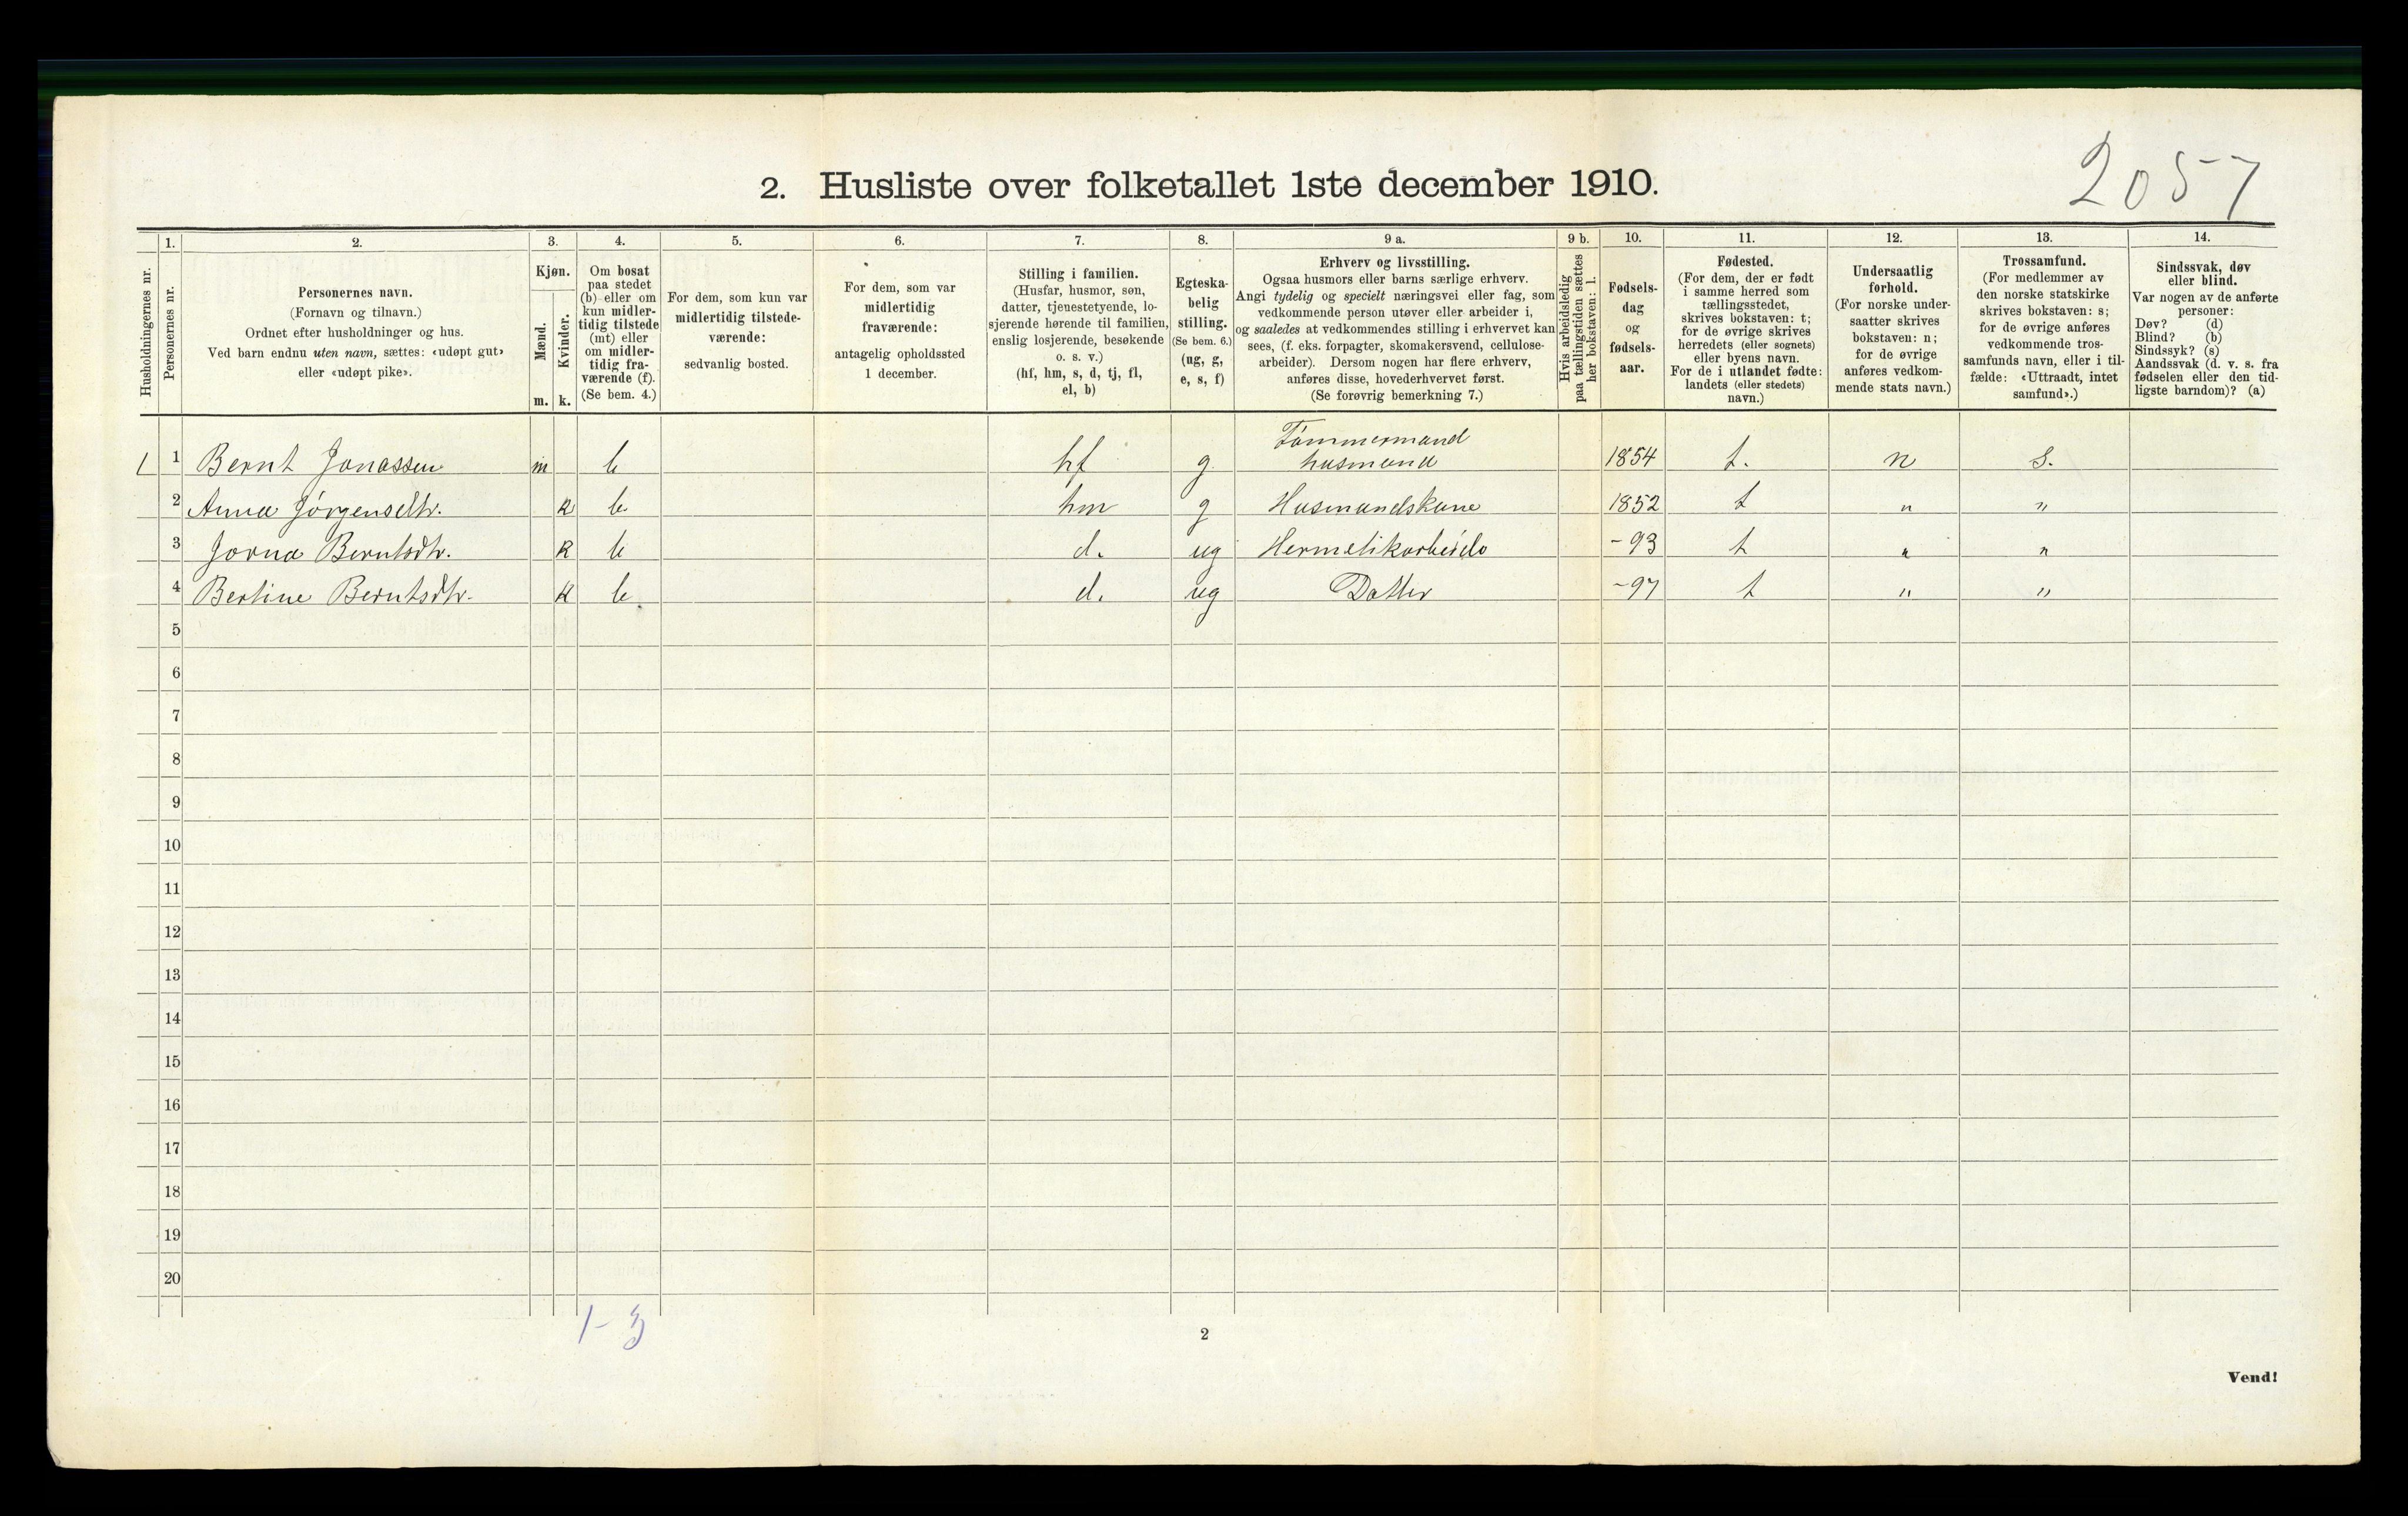 2057
2. Husliste over folketallet 1ste december 1910.
Husholdningernes nr.
1.
Personernes nr.
2.
Personernes navn.
(Fornavn og tilnavn.)
Ordnet efter husholdninger og hus.
Ved barn endnu uten navn, sættes: «udøpt gut»
eller «udøpt pike».
3.
Kjøn.
Mænd.
Kvinder.
m. k.
4.
Om bosat
paa stedet
(b) eller om
kun midler-
tidig tilstede
(mt) eller
om midler-
tidig fra-
værende (f).
(Se bem. 4.)
5.
For dem, som kun var
midlertidig tilstede-
værende:
sedvanlig bosted.
6.
For dem, som var
midlertidig
fraværende:
antagelig opholdssted
1 december.
7.
Stilling i familien.
(Husfar, husmor, søn,
datter, tjenestetyende, lo-
sjerende hørende til familien,
enslig losjerende, besøkende
o. s. v.)
(hf, hm, s, d, tj, fl,
el, b)
8.
Egteska-
belig
stilling.
(Se bem. 6.)
(ug, g,
e, s, f)
9 a.
Erhverv og livsstilling.
Ogsaa husmors eller barns særlige erhverv.
Angi tydelig og specielt næringsvei eller fag, som
vedkommende person utøver eller arbeider i,
og saaledes at vedkommendes stilling i erhvervet kan
sees, (f. eks. forpagter, skomakersvend, cellulose-
arbeider). Dersom nogen har flere erhverv,
anføres disse, hovederhvervet først.
(Se forøvrig bemerkning 7.)
9 b.
Hvis arbeidsledig
paa tællingstiden sættes
her bokstaven: l.
10.
Fødsels-
dag
og
fødsels-
aar.
11.
Fødested.
(For dem, der er født
i samme herred som
tællingsstedet,
skrives bokstaven: t;
for de øvrige skrives
herredets (eller sognets)
eller byens navn.
For de i utlandet fødte:
landets (eller stedets)
navn.)
12.
Undersaatlig
forhold.
(For norske under-
saatter skrives
bokstaven: n;
for de øvrige
anføres vedkom-
mende stats navn.)
13.
Trossamfund.
(For medlemmer av
den norske statskirke
skrives bokstaven: s;
for de øvrige anføres
vedkommende tros-
samfunds navn, eller i til-
fælde: «Uttraadt, intet
samfund».)
14.
Sindssvak, døv
eller blind.
Var nogen av de anførte
personer:
Døv? (d)
Blind? (b)
Sindssyk? (s)
Aandssvak (d. v. s. fra
fødselen eller den tid-
ligste barndom)? (a)
Tømmermand
1 1 Bernt Jonassen m b hf g husmand 1854 t. n s.
2 Anna Jørgensdtr. k b hm g Husmandskone 1852 t " "
3 Jorna Berntsdtr. k b d. ug Hermetikarbeide -93 t " "
4 Bertine Berntsdtr. k b d. ug Datter -97 t " "
5
6
7
8
9
10
11
12
13
14
15
16
17
18
19
20
1-3
2
Vend!